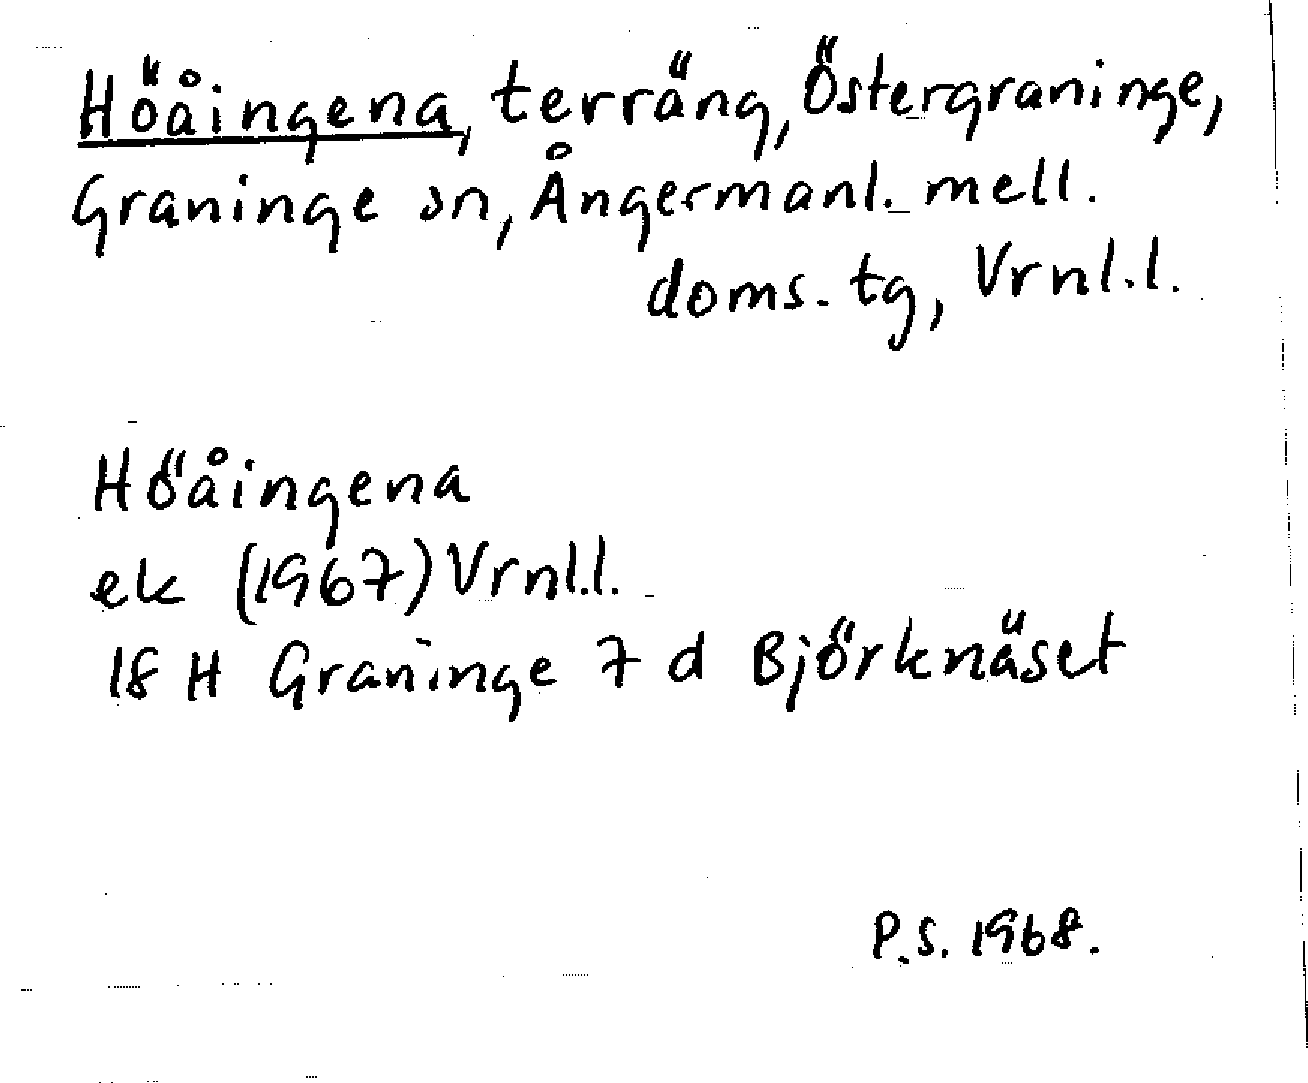 Höåingena, terräng, Östergraninge,
Graninge sn, Ångermanl. mell.
doms. tg, Vrnl.l.
Höåingena
ek (1967) Vrnl.l.
18 H Graninge 7 d Björknäset
P.S. 1968.